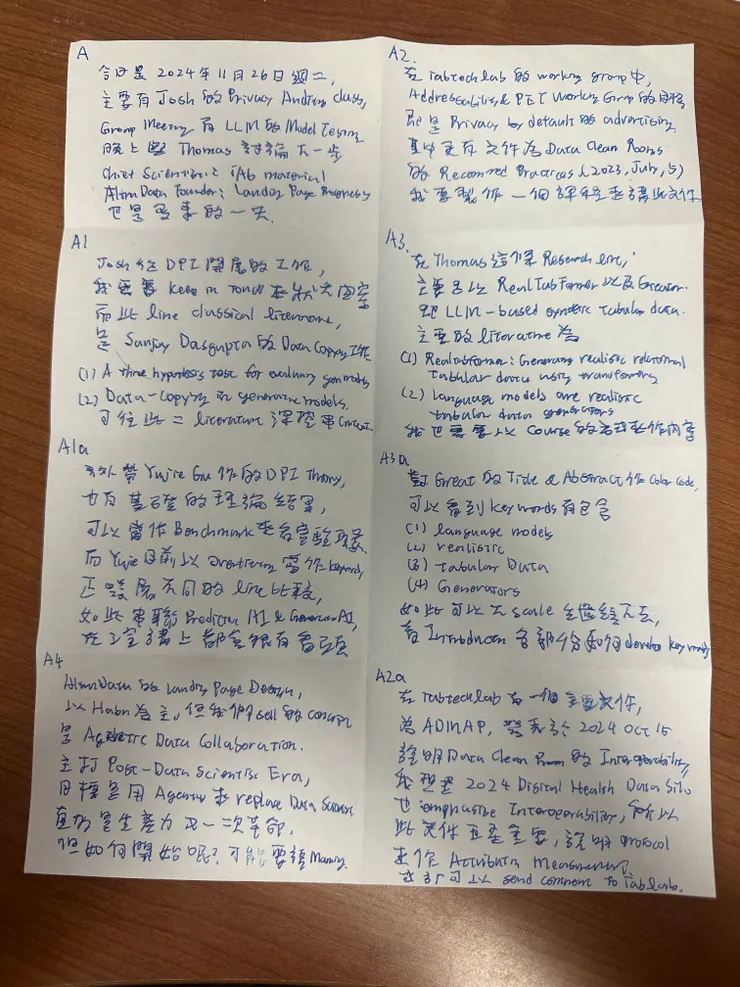 A
今日是 2024年11月26日週二,
主要有 Josh 的 Privacy Auditing class,
Group Meeting 有 LLM 的 Model Testing
晚上與 Thomas 討論下一步
Chief Scientist: iAb material
AlignData Founder: Landing Page Progress
也是 的一天.
A1
Josh 從 DPI 開展的工作,
我需要 keep in touch
而此 line classical literature,
是 Sanjoy Dasgupta 的 Data Copying 工作
(1) A three hypothesis test for evaluating gen models
(2) Data-copying in generative models.
可往此二 literature 深挖 Context.
A1a
另外帶 Yujie Gu 作的 DPI Theory,
也有基礎的理論結果,
可以當作 Benchmark
而 Yujie 目前以 寫作 keyword,
不同的 line 比較,
如此串聯 Predictive AI & Generative AI,
在 上都會很有
A4
AlignData 的 Landing Page Design,
以 為主, 但我們 sell 的 concept
是 Agentic Data Collaboration.
主打 Post-Data Scientist Era,
目標是用 Agent 來 replace Data Scientist
真的是生產力又一次革命,
但如何開始呢? 可能要讀
A2.
在 iabtechlab 的 working group 中,
Addressability & PET Working Group 的目標
即是 Privacy by default 的 advertising
其中更有文件為 Data Clean Rooms
的 Recommend Practices (2023, July, 5)
我要製作一個課程來講此文件
A3.
在 Thomas 這條 Research line,
主要是以 RealTabFormer 以及 Great
LLM-based synthetic tabular data.
主要的 literature 為
(1) Realtabformer: Generating realistic relational
Tabular data using transformers
(2) Language models are realistic
tabular data generators
我也需要以 Course 的方式來作內容
A3a
對 Great 的 Title & Abstract 作 Color Code,
可以看到 keywords 有包含
(1) language models
(2) realistic
(3) tabular Data
(4) Generators
如此可以 scale 全 下去,
看 Introduction 各部分如何 develop keywords
A2a
在 iabtechlab 有一個重要文件,
為 ADMAP, 發表於 2024 Oct 15
說明 Data Clean Room 的 Interoperability
我想是 2024 Digital Health Data Silo
也 emphasize Interoperability, 所以
此文件五星重要, 說明 protocol
來作 Attribution Measurement,
或許可以 send comment to iabtechlab.